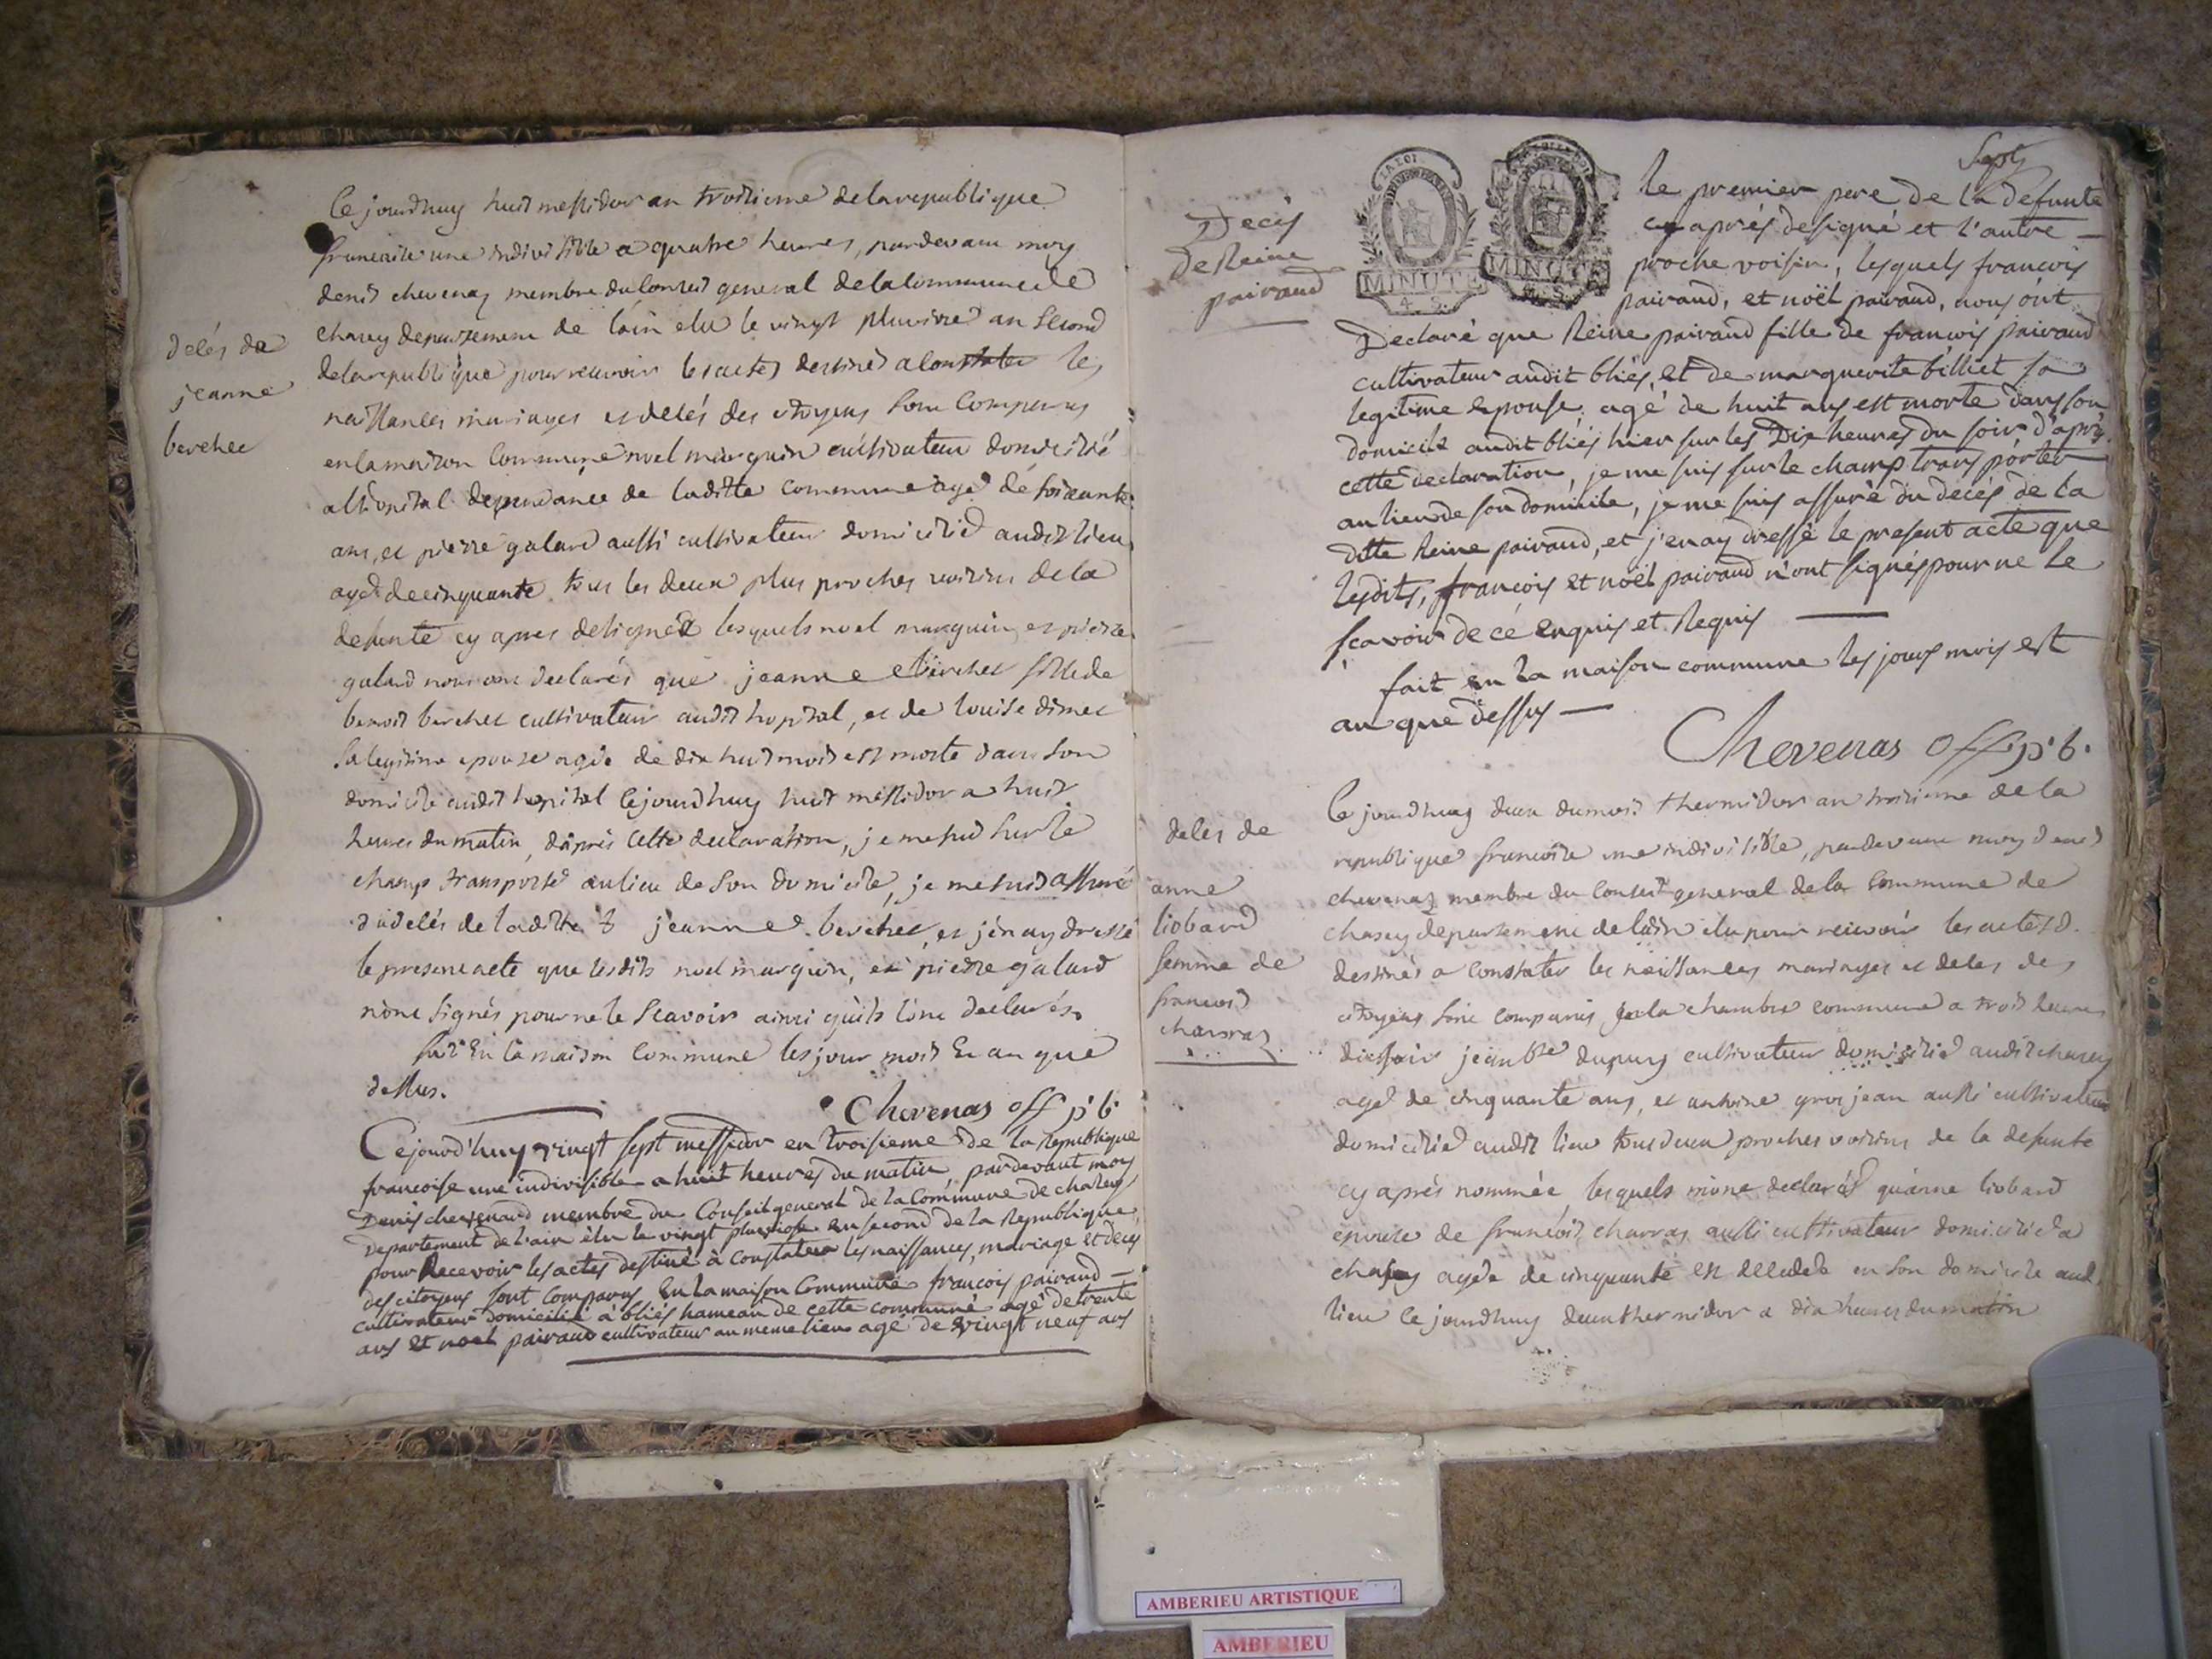 Ce jourdhuy huit messidor an troisieme de la republique
francaise une indivisible a quatre heures, pardevant moy
denis chevenas membre du conseil general de la commune de
chasey departement de lain elu le vingt pluviose an second
de la republique pour recevoir les actes destinés a constater les
naissances mariages et decés des citoyens sont comparus
en la maison commune noel marguin cultivateur domicilié
a lhopital dependance de laditte commune agé de soixante
ans, et pierre galand aussi cultivateur domicilié audit lieu
agé de cinquante tous les deux plus proches voisins de la
defunte cy apres designée lesquels noel marguin et pierre
galand nous ont declarés que jeanne berchet fille de
benoit berchet cultivateur audit hopital, et de louise dimet
sa legitime epouse agée de dix huit mois est morte dans son
domicile audit hopital cejourdhuy huit messidor a huit
heures du matin, d'apres cette declaration, je me suis sur le
champ transporté au lieu de son domicile, je me suis assuré
du decés de laditte jeanne berchet, et j'en ay dressé
le present acte que lesdits noel marguin, et pierre galand
n'ont signés pour ne le scavoir ainsi qu'ils l'ont declarés.
fait en la maison commune les jour mois et an que
dessus.
Chevenas off p. b.
decés de
jeanne
berchet
Cejourd'huy vingt sept messidor en troisieme de la republique
francoise une indivisible a huit heures du matin pardevant moy
Denis chevenard membre du Conseil general de la Commune de chazey
departement de l'ain élu le vingt pluviose an second de la Republique
pour Recevoir les actes destiné à constater les naissances, mariage et deces
des citoyens sont comparus En la maison Commune francois pairaud
cultivateur domicilié à bliés hameau de cette commune agé de trente
ans et noel pairaud cultivateur au meme lieu agé de vingt neuf ans
Sept
Decés
de Reine
pairaud
LA LOI
MINUTE
4. S.
MINUTE
4. S.
le premier pere de la defunte
cy aprés designé et l'autre
proche voisin, lesquels francois
pairaud, et noël pairaud, nous ont
Declaré que Reine pairaud fille de francois pairaud
cultivateur audit bliés, et de marguerite billiet sa
legitime epouse agé de huit ans est morte dans son
domicile audit bliés hier sur les Dix heures du soir d'aprés
cette declaration, je me suis sur le champ transporter
au lieu de son domicile, je me suis assuré du decés de la
ditte Reine pairaud, et j'en ay dressé le present acte que
lesdits, francois et noël pairaud n'ont signés pour ne le
scavoir de ce enquis et Requis
fait en la maison commune les jours mois est
an que dessus
Chevenas off p. b.
decés de
anne
liobard
femme de
francois
charvas
Ce jourdhuy deux du mois thermidor an troisieme de la
republique francoise une indivisible, pardevant moy denis
chevenas membre du conseil general de la commune de
chasey departement de lain elu pour recevoir les actes d.
destinés a constater les naissances mariages et deces des
citoyens sont comparus en la chambre commune a trois heures
du soir jean bte dupuy cultivateur domicilié audit chasey
agé de cinquante ans, et antoine grosjean aussi cultivateur
domicilié audit lieu tous deux proches voisins de la defunte
cy aprés nommée lesquels m'ont declarés qu'anne liobard
epouse de francois charvas aussi cultivateur domicilié a
chasey agée de cinquante est decedée en son domicile aud.
lieu ce jourdhuy deux thermidor a dix heures du matin
AMBERIEU ARTISTIQUE
AMBERIEU